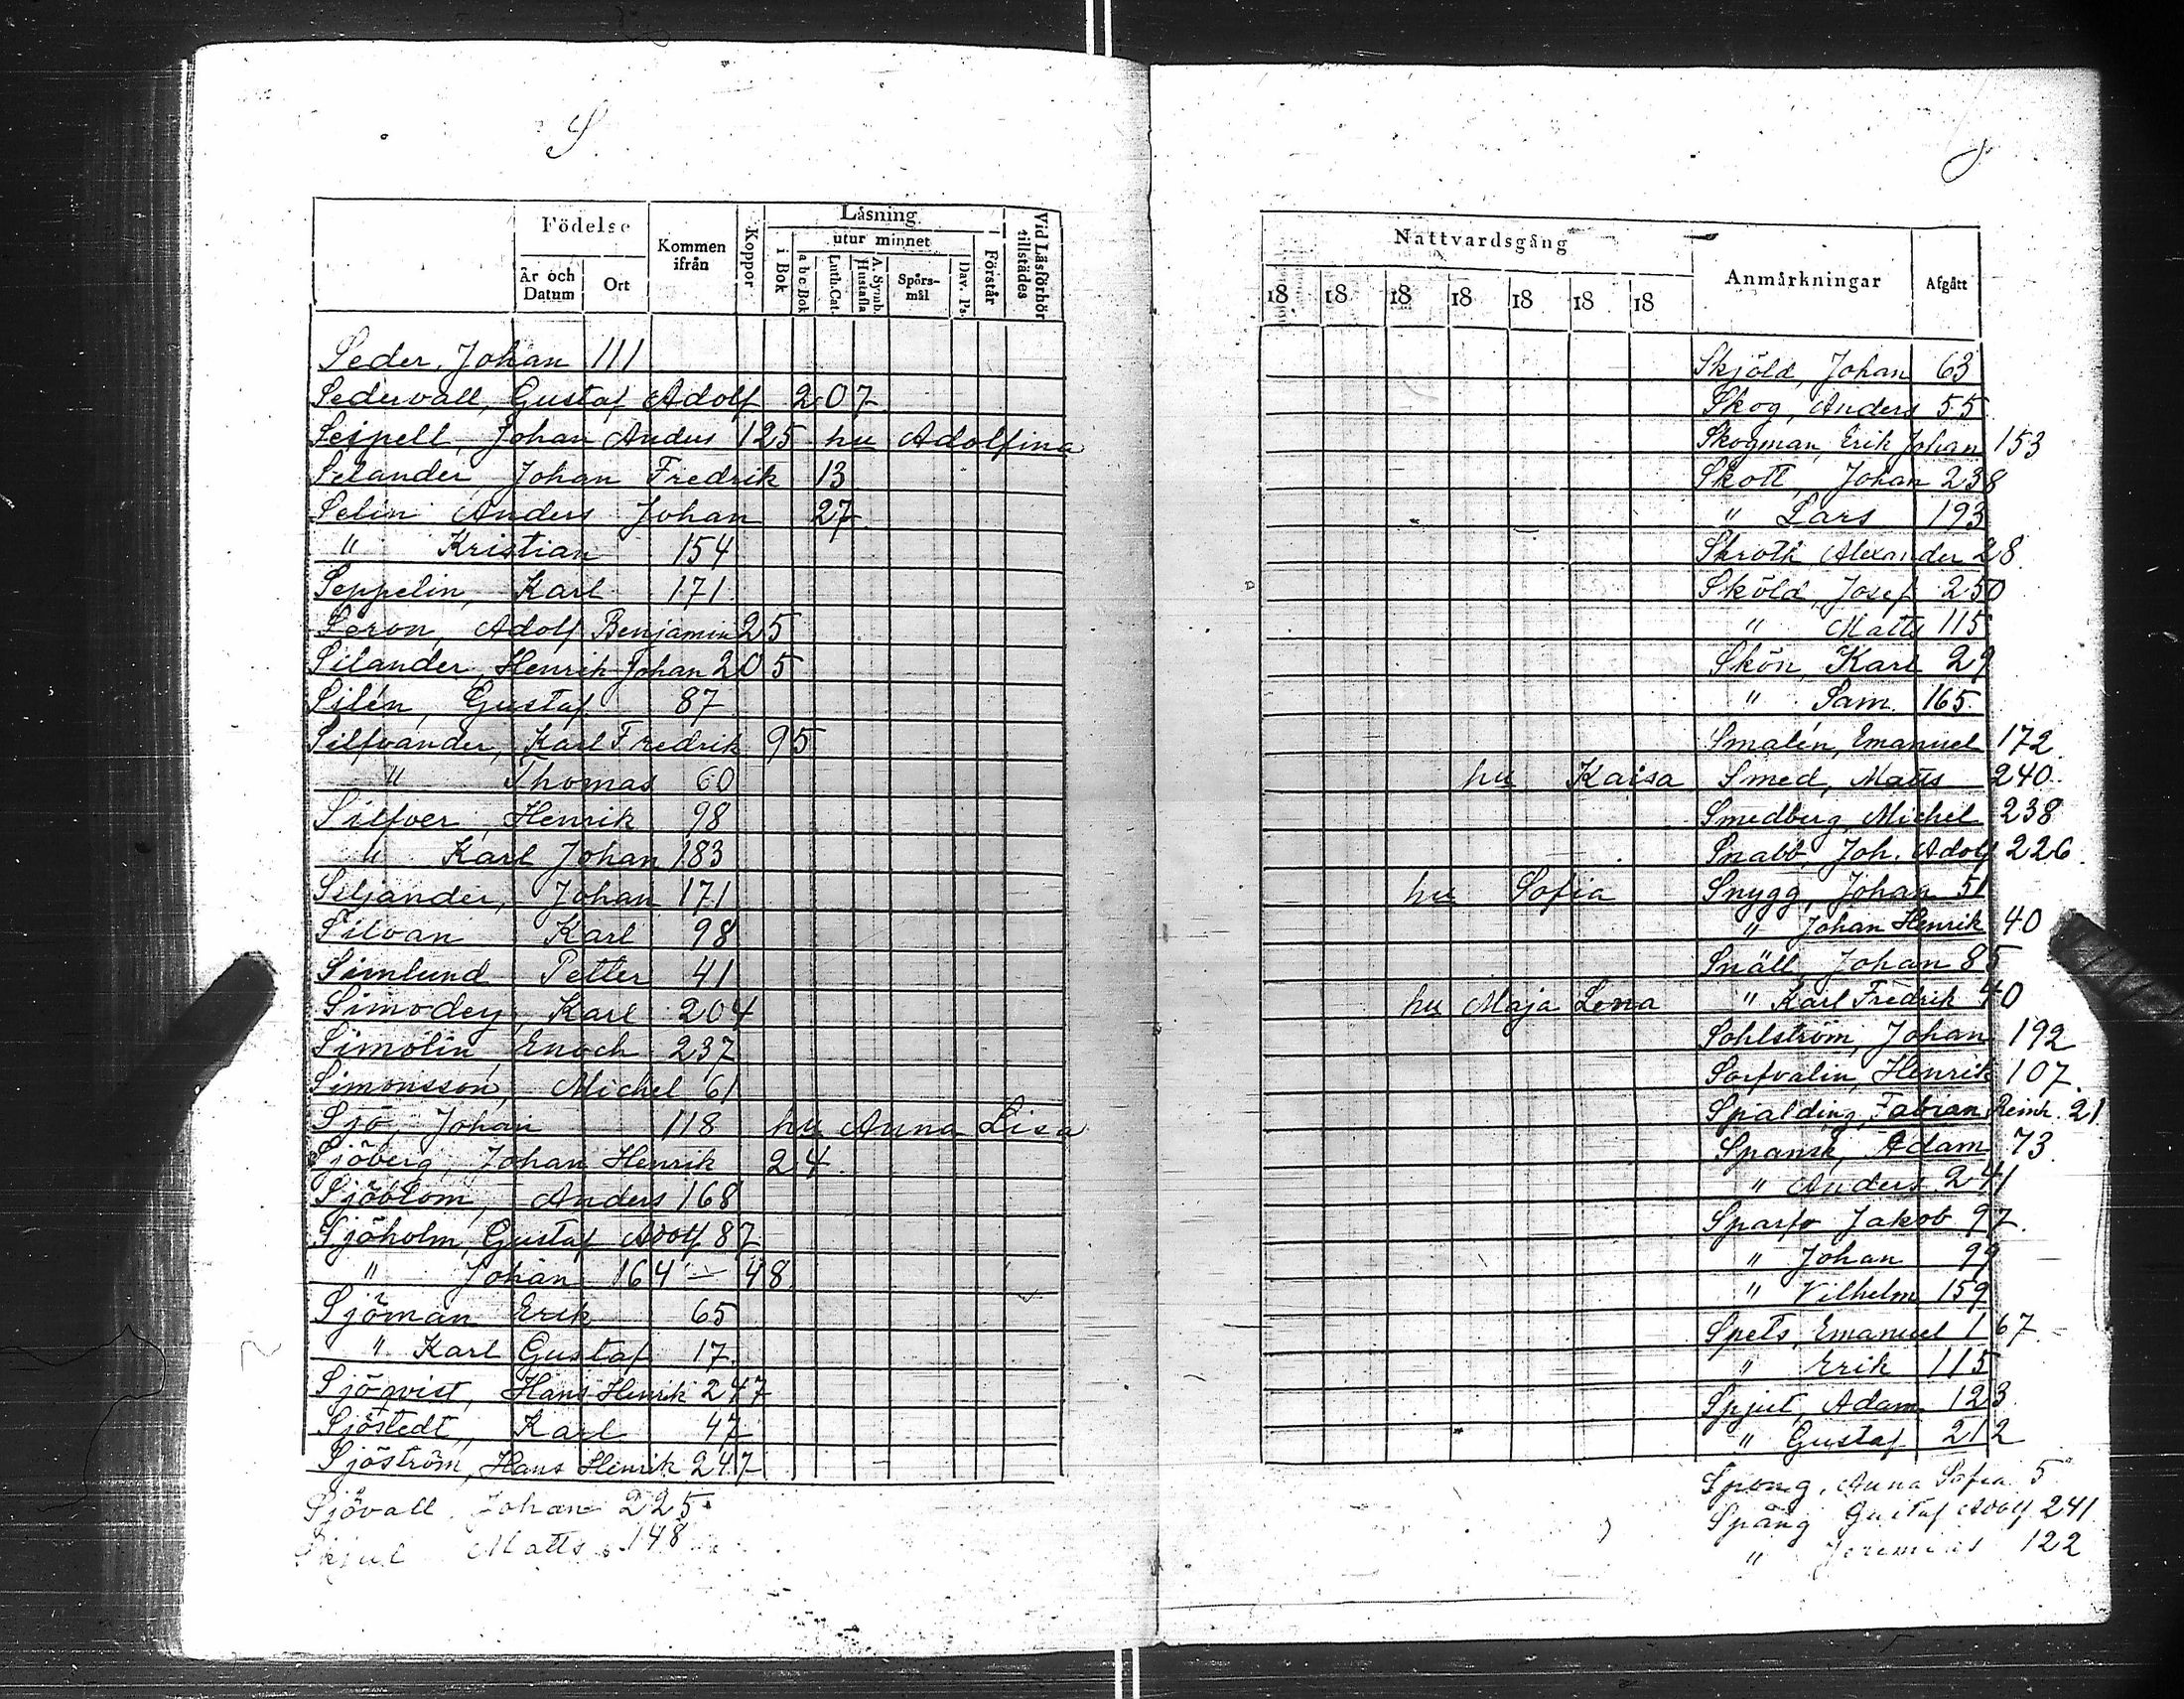 S.
Födelse
Kommen ifrån
Koppor
Läsning
Vid Läsförhör tillstädes
År och Datum
Ort
i Bok
utur minnet
Förstår
a b c Bok
Luth. Cat.
A. Symb. Hustafla
Spörs-mål
Dav. Ps.
Seder, Johan 111
Sedervall, Gustaf Adolf 207
Seipell, Johan Anders 125 hu Adolfina
Selander Johan Fredrik 13
Selin Anders Johan 27
" Kristian 154
Seppelin, Karl 171
Seron, Adolf Benjamin 25
Silander, Henrik Johan 205
Silén, Gustaf 87
Silfvander, Karl Fredrik 95
" Thomas 60
Silfver, Henrik 98
" Karl Johan 183
Siljander, Johan 171
Silvan Karl 98
Simlund Petter 41
Simodey, Karl 204
Simolin Enoch 237
Simonsson, Michel 61
Sjö, Johan 118 hu Anna Lisa
Sjöberg, Johan Henrik 24
Sjöblom, Anders 168
Sjöholm, Gustaf Adolf 87
" Johan 164 — 48
Sjöman Erik 65
" Karl Gustaf 17
Sjöqvist, Hans Henrik 247
Sjöstedt, Karl 47
Sjöström, Hans Henrik 247
Sjövall, Johan 225
Skjul Matts 148
Nattvardsgång
Anmärkningar
Afgått
18 18 18 18 18 18 18
Skjöld, Johan 63
Skog, Anders 55
Skogman, Erik Johan 153
Skott, Johan 238
" Lars 193
Skroth Alexander 28
Sköld, Josef 250
" Matts 115
Skön, Karl 29
" Sam. 165
Smalén, Emanuel 172
hu Kaisa Smed, Matts 240
Smedberg Michel 238
Snabb, Joh. Adolf 226
hu Sofia Snygg, Johan 51
" Johan Henrik 40
Snäll, Johan 85
hu Maja Lena " Karl Fredrik 40
Sohlström, Johan 192
Sorfvalin, Henrik 107
Spalding, Fabian Reinh. 21
Spansk, Adam 73
" Anders 241
Sparfv Jakob 97
" Johan 99
" Vilhelm 159
Spets, Emanuel 167
" Erik 115
Spjut, Adam 123
" Gustaf 212
Spong, Anna Sofia 5
Spång Gustaf Adolf 241
" Jeremias 122